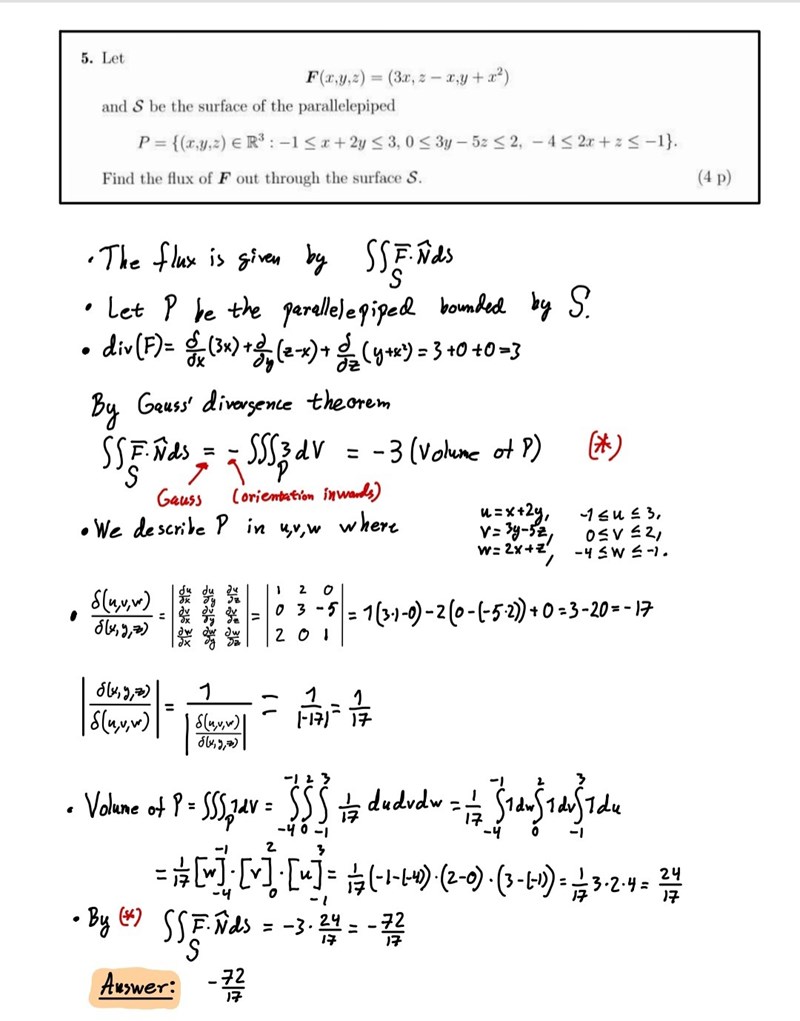 5. Let
F(x,y,z) = (3x, z − x,y + x²)
and S be the surface of the parallelepiped
P = {(x,y,z) ∈ ℝ³ : −1 ≤ x + 2y ≤ 3, 0 ≤ 3y − 5z ≤ 2, −4 ≤ 2x + z ≤ −1}.
Find the flux of F out through the surface S. (4 p)
• The flux is given by ∬_S F̄·N̂ds
• Let P be the parallelepiped bounded by S.
• div(F) = ∂/∂x (3x) + ∂/∂y (z-x) + ∂/∂z (y+x²) = 3+0+0=3
By Gauss' divergence theorem
∬_S F̄·N̂ds = - ∭_P 3dV = -3 (Volume of P) (*)
Gauss (orientation inwards)
• We describe P in u,v,w where
u=x+2y, -1≤u≤3,
v=3y-5z, 0≤v≤2,
w=2x+z, -4≤w≤-1.
• δ(u,v,w)/δ(x,y,z) = |∂u/∂x ∂u/∂y ∂u/∂z; ∂v/∂x ∂v/∂y ∂v/∂z; ∂w/∂x ∂w/∂y ∂w/∂z| = |1 2 0; 0 3 -5; 2 0 1| = 1(3·1-0)-2(0-(-5·2))+0=3-20=-17
|δ(x,y,z)/δ(u,v,w)| = 1/|δ(u,v,w)/δ(x,y,z)| = 1/|-17| = 1/17
• Volume of P = ∭_P 1dV = ∫_{-4}^{-1} ∫_0^2 ∫_{-1}^3 1/17 dudvdw = 1/17 ∫_{-4}^{-1} 1dw ∫_0^2 1dv ∫_{-1}^3 1du
= 1/17 [w]_{-4}^{-1} · [v]_0^2 · [u]_{-1}^3 = 1/17 (-1-(-4))·(2-0)·(3-(-1)) = 1/17 3·2·4 = 24/17
• By (*) ∬_S F̄·N̂ds = -3· 24/17 = - 72/17
Answer: - 72/17